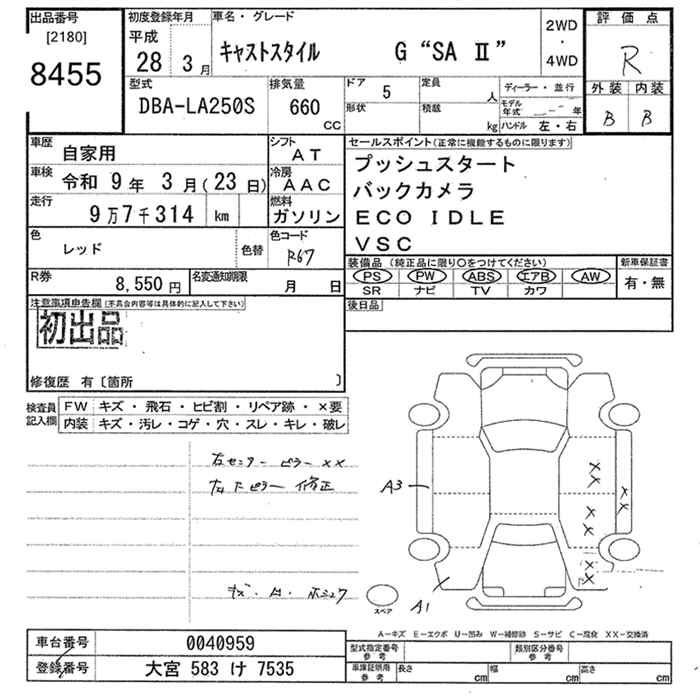 出品番号
[2180]
8455
初度登録年月
平成
28 3月
車名・グレード
キャストスタイル G "SA Ⅱ"
2WD
・
4WD
評価点
R
外装 内装
B B
型式
DBA-LA250S
排気量
660
cc
ドア 5
形状
定員 人
積載 kg
ディーラー・並行
モデル年式 年
ハンドル 左・右
車歴
自家用
車検 令和 9年 3月(23日)
走行
9万7千314 km
シフト
AT
冷房
AAC
燃料
ガソリン
色
レッド
色替
色コード
R67
R券
8,550円
名変通知期限
月 日
セールスポイント(正常に機能するものに限ります)
プッシュスタート
バックカメラ
ECO IDLE
VSC
装備品 (純正品に限り○をつけてください)
PS PW ABS エアB AW
SR ナビ TV カワ
新車保証書
有・無
後日品
注意事項申告欄(不具合内容等は具体的に記入して下さい)
初出品
修復歴 有〔箇所 〕
検査員
記入欄
FW キズ・飛石・ヒビ割・リペア跡・×要
内装 キズ・汚レ・コゲ・穴・スレ・キレ・破レ
右センターピラー ××
ピラー 修正
A3
A1
××
××
××
××
スペア
A-キズ E-エクボ U-凹み W-補修跡 S-サビ C-腐食 XX-交換済
車台番号 0040959
登録番号 大宮 583 け 7535
型式指定番号
参考
類別区分番号
参考
車庫証明用
参考
長さ cm
幅 cm
高さ cm